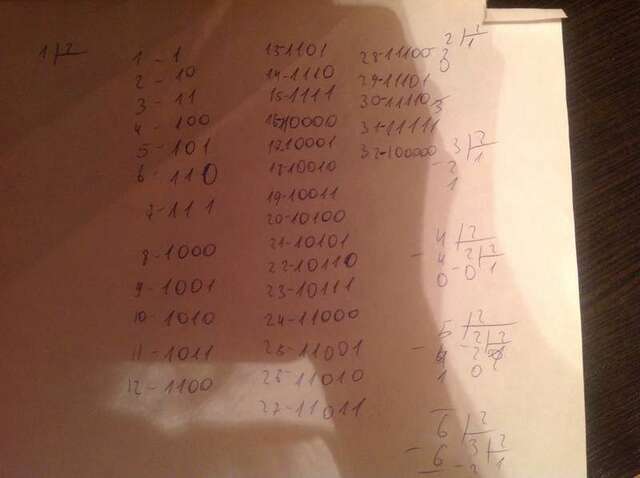 1 | 2
1 - 1
2 - 10
3 - 11
4 - 100
5 - 101
6 - 110
7 - 111
8 - 1000
9 - 1001
10 - 1010
11 - 1011
12 - 1100
13-1101
14-1110
15-1111
16-10000
17-10001
18-10010
19-10011
20-10100
21-10101
22-10110
23-10111
24-11000
25-11001
26-11010
27-11011
28-11100
29-11101
30-11110
31-11111
32-100000
2 | 2
2 1
0
3 | 2
- 2 1
1
4 | 2
- 4 2 | 2
0 - 0 1
5 | 2
- 4 2 | 2
1 0
6 | 2
- 6 3 | 2
- 2 1